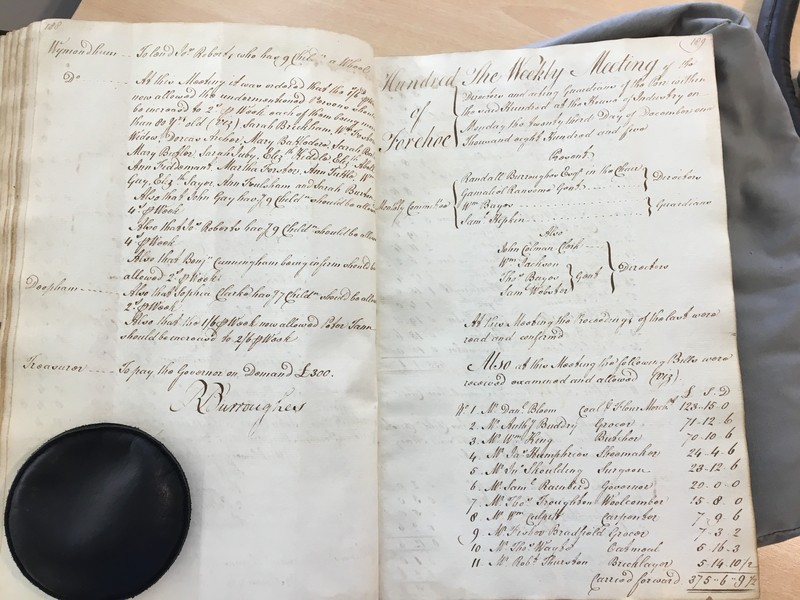 188
Wymondham To land Jos Roberts who has 9 Childn a Week
Do At this Meeting it was ordered that the 1/6 p Week
now allowed the undermentioned Persons should
be increased to 2s p Week each of them being more
than 80 Yrs old (Viz) Sarah Brickham, Wm Forster
Widow, Dorcas Archer, Mary Sarah
Mary Buffler, Sarah Juby, Elizth Kiddle, Elizth
Ann Tiddeman, Martha Forster, Ann Tuttle,
Guy, Elizth Sayer, Ann Foulsham and Sarah Burton
Also that John Gay havg 9 Childn should be allowed
4s p Week
Also that Jos Roberts havg 9 Childn should be allowed
4s p Week
Also that Benjn Cunningham being infirm should be
allowed 2s p Week
Deopham Also that Sophia Clarke havg 7 Childn should be allowed
2s p Week
Also that the 1/6 p Week now allowed Peter Tann
should be increased to 2/6 p Week
Treasurer To pay the Governor on Demand £300.
RBurroughes
189
Hundred of Forehoe
The Weekly Meeting of the
Directors and acting Guardians of the Poor within
the said Hundred at the House of Industry on
Monday the twenty third Day of December one
Thousand eight Hundred and five
Present
Monthly Committee
Randall Burroughes Esqr in the Chair
Gamaliel Ransome Gent
Directors
Wm Bayes
Saml Stepkin
Guardians
Also
John Colman Clerk
Wm Jackson
Thos Bayes
Saml Webster
Gent
Directors
At this Meeting the Proceedings of the last were
read and confirmd
Also at this Meeting the following Bills were
received examined and allowed (Viz)
£ S D
No 1 Mr Danl Bloom Coal & Flour Mercht 123-15-0
2 Mr Anthy Buddry Grocer 71-12-6
3 Mr Wm King Butcher 70-10-6
4 Mr Jas Humphries Shoemaker 24-4-6
5 Mr Jno Skoulding Surgeon 28-12-6
6 Mr Saml Rainbird Governor 20-0-0
7 Mr Thos Troughton Woolcomber 15 8 0
8 Mr Wm Carpenter 7-9 6
9 Mr Fisher Bradfield Grocer 7-3-2
10 Mr Thos Oatmeal 5-16-3
11 Mr Robt Thurston Bricklayer 5-14-10½
Carried forward 375-6-9½